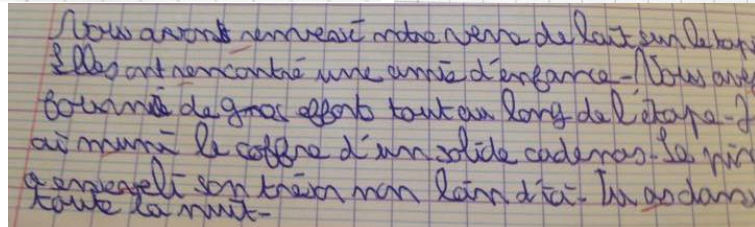 Nous avons renversé notre verre de lait sur le tapi
Elles ont rencontré une amie d'enfance - Nous av
fournis de gros efforts tout au long de l'étape -
ai muni le coffre d'un solide cadenas. Le pir
a enseveli son trésor non loin d'ici - Tu as dans
toute la nuit -